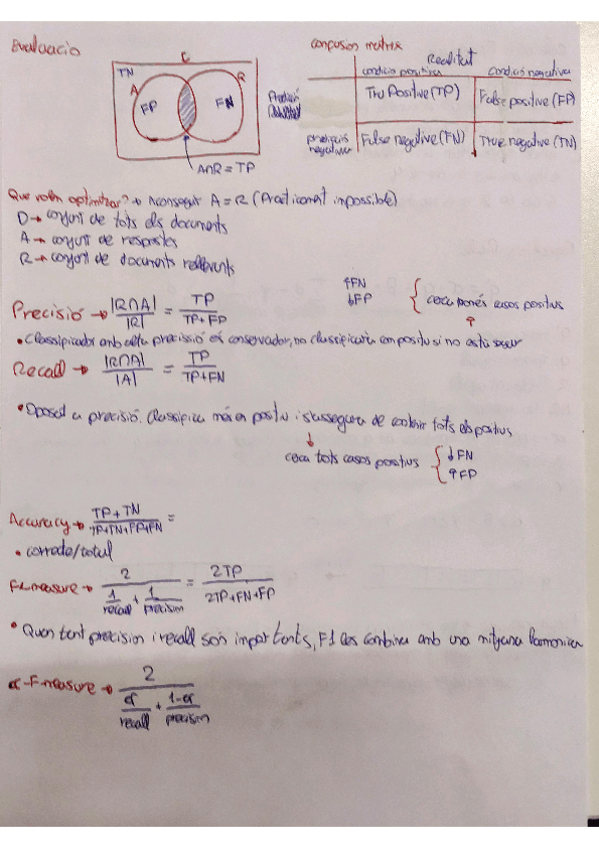 Evaluacio
confusion matrix
Realitat
condició positiva
condició negativa
TN
A
R
FP
FN
A∩R = TP
Predicció
Tru Positive (TP)
False positive (FP)
predicció negativa
False negative (FN)
True negative (TN)
Que volem optimitzar? → Aconseguir A = R (Practicament impossible)
D → conjunt de tots els documents
A → conjunt de respostes
R → conjunt de documents rellevants
Precisió → |R∩A| / |R| = TP / TP+FP
↑FN
↓FP
{ cerca només casos positius
• Classificador amb alta precissió és conservador, no classificarà com positiu si no està segur
Recall → |R∩A| / |A| = TP / TP+FN
• Oposat a precisió. Classifica més en positiu i s'assegura de contenir tots els positius
cerca tots casos positius { ↓FN
↑FP
Accuracy → TP+TN / TP+TN+FP+FN =
• correcte/total
F1-measure → 2 / 1/recall + 1/precision = 2TP / 2TP+FN+FP
• Quan tant precision i recall són importants, F1 les combina amb una mitjana harmonica
α-F-measure → 2 / α/recall + 1-α/precision